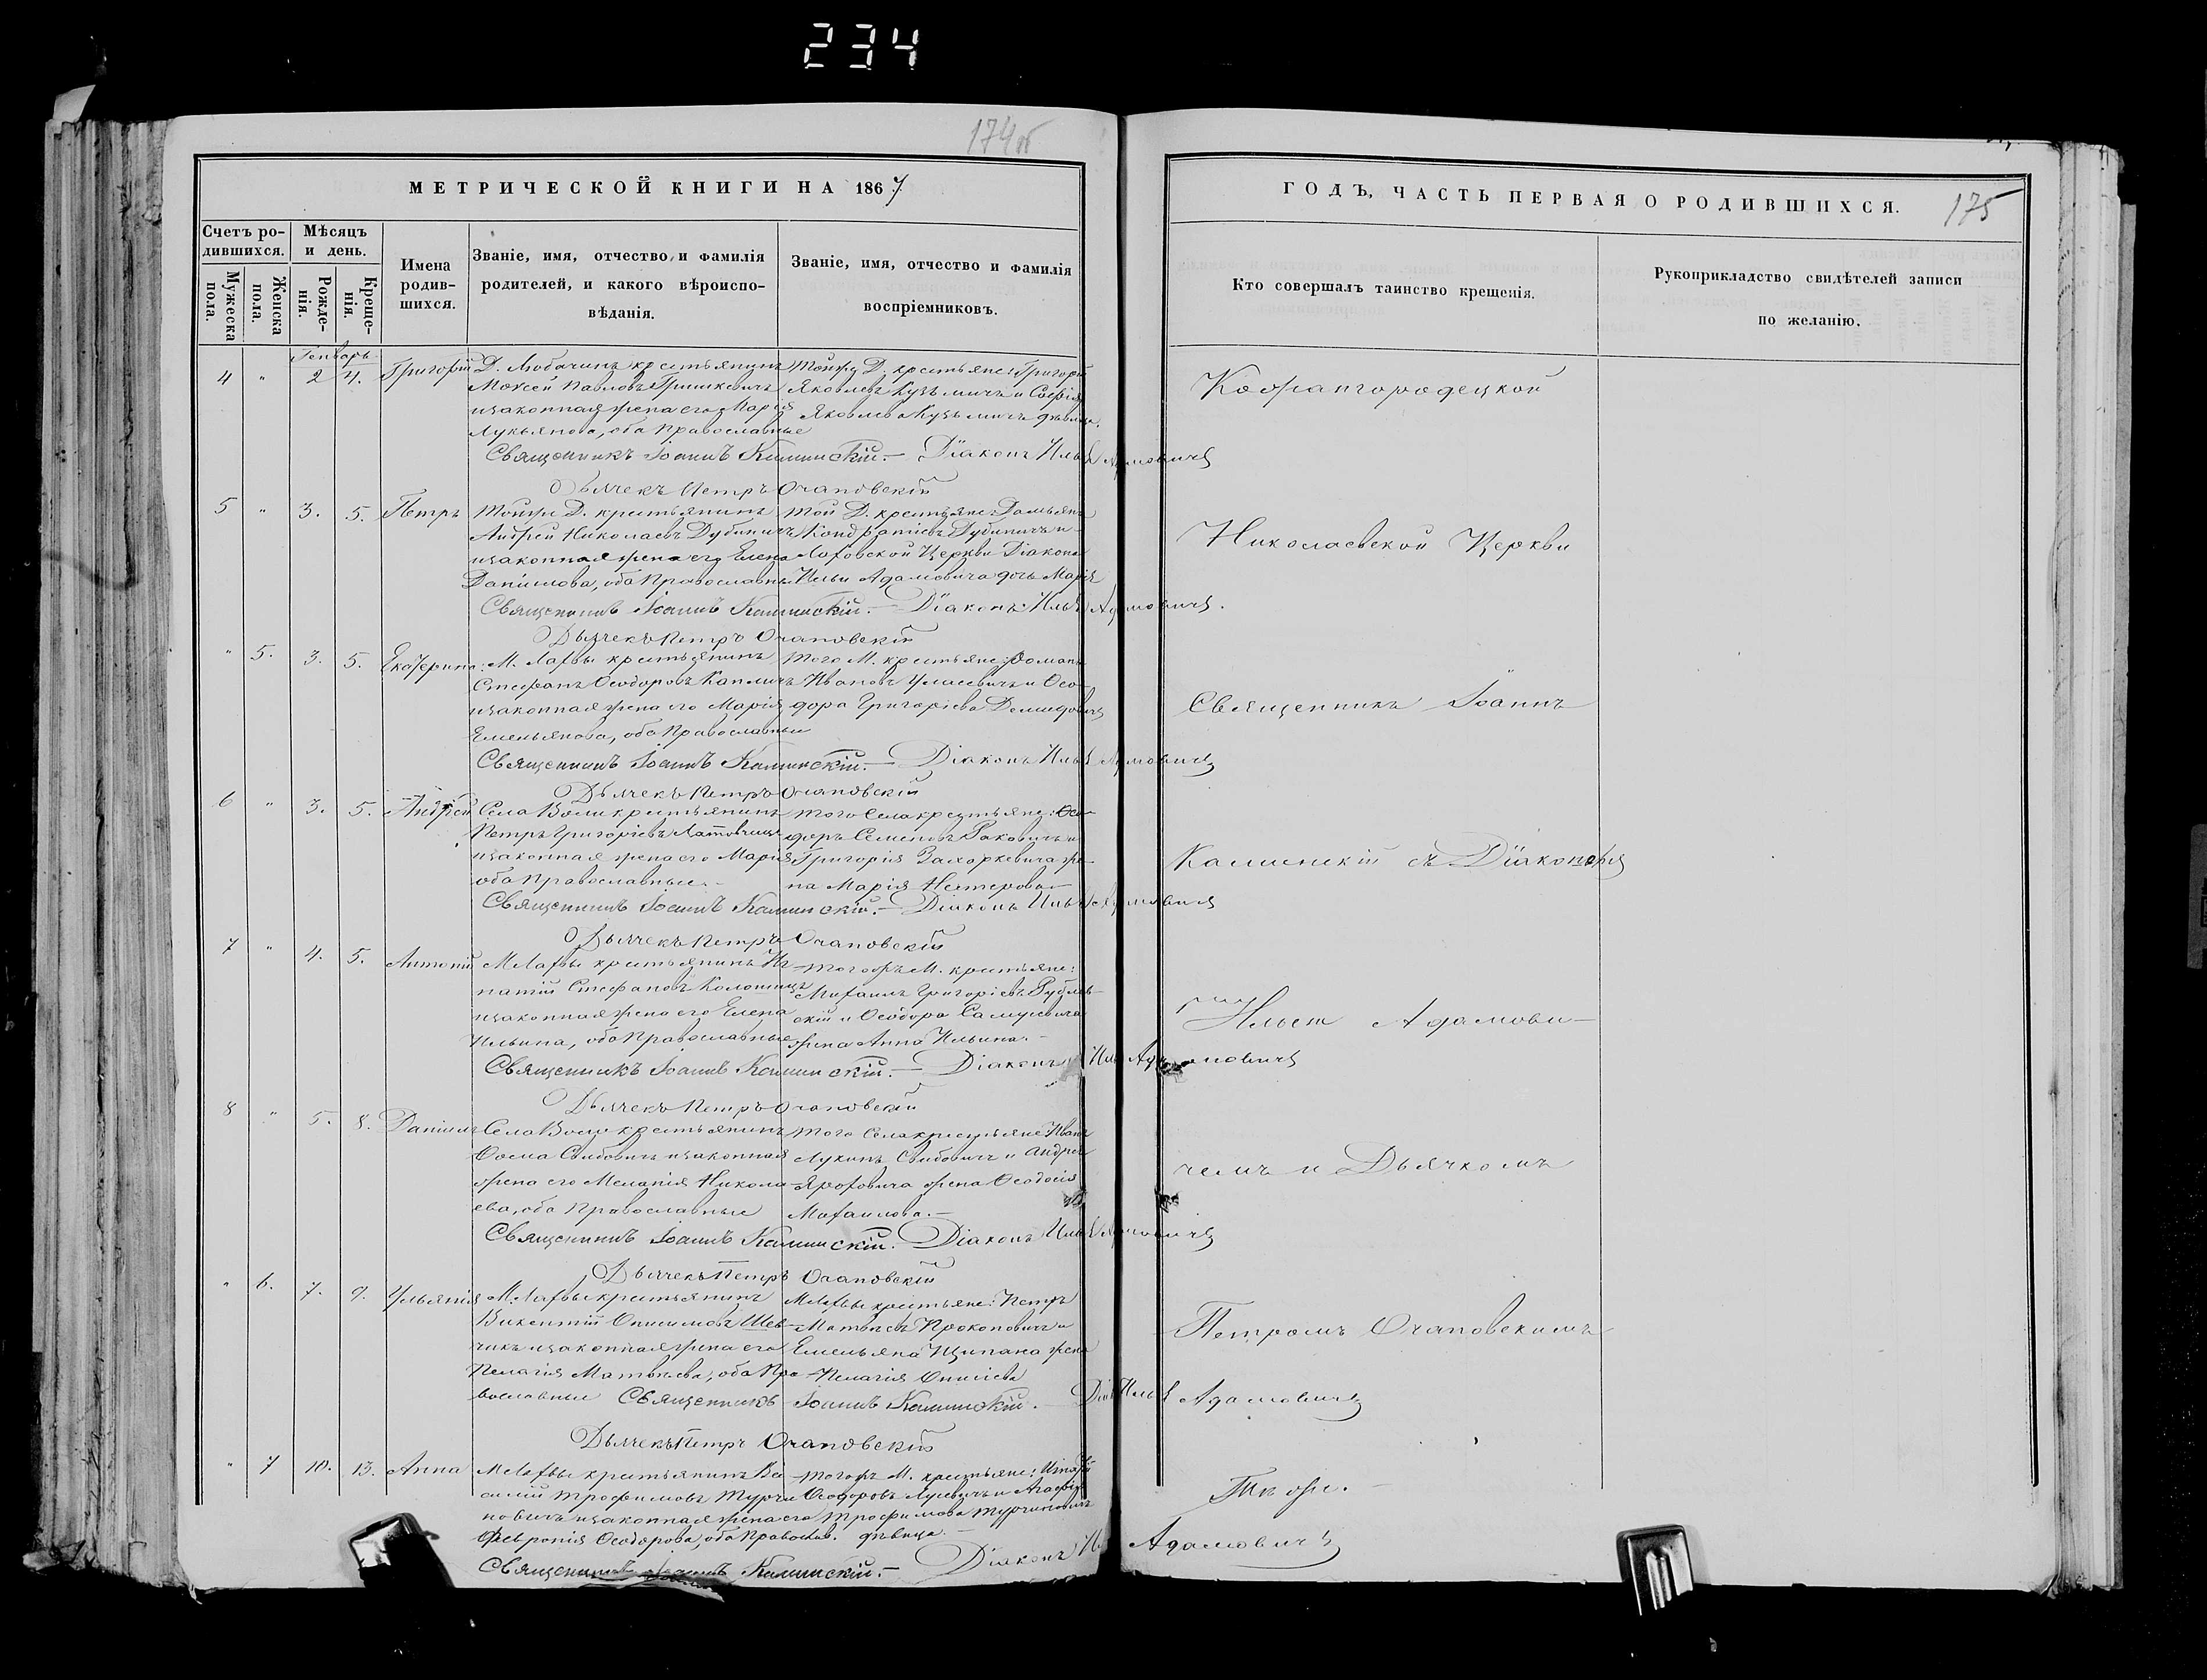 234
174об
МЕТРИЧЕСКОЙ КНИГИ НА 1867
ГОДЪ, ЧАСТЬ ПЕРВАЯ О РОДИВШИХСЯ.
175
Счетъ ро-
дившихся.
Мужеска
пола.
Женска
пола.
Мѣсяцъ
и день.
Рожде-
нія.
Креще-
нія.
Имена
родив-
шихся.
Званіе, имя, отчество, и фамилія
родителей, и какого вѣроиспо-
вѣданія.
Званіе, имя, отчество и фамилія
воспріемниковъ.
Кто совершалъ таинство крещенія.
Рукоприкладство свидѣтелей записи
по желанію.
Генварь
4 " 2 4. Григорій
Д. Любачинъ крестьянинъ
Моисей Павловъ Гришкевичъ
и законная жена его Марія
Лукьянова, оба Православные
Тойжъ Д. крестьяне: Григорій
Яковлевъ Кузьмичъ и Софія
Яковлева Кузьмичъ дѣвица.
Священникъ Іоаннъ Каминскій. — Діаконъ Илья Адамовичъ
Дьячекъ Петръ Очаповскій
5 " 3. 5. Петръ
Тойже Д. крестьянинъ
Андрей Николаевъ Дубиничъ
и законная жена его Елена
Даніилова, оба Православны
Той Д. крестьяне: Дамьянъ
Кондратіевъ Дубиничъ и
Лахвовской Церкви Діакона
Ильи Адамовича дочь Марія
Священникъ Іоаннъ Каминскій. — Діаконъ Илья Адамовичъ.
Дьячекъ Петръ Очаповскій
" 5. 3. 5. Екатерина
М. Лахвы крестьянинъ
Стефанъ Ѳеодоровъ Капличъ
и законная жена его Марія
Емельянова, оба Православные
Того М. крестьяне: Романъ
Ивановъ Уласевичъ и Ѳео-
дора Григоріева Демидовичъ
Священникъ Іоаннъ Каминскій. — Діаконъ Илья Адамовичъ
Дьячекъ Петръ Очаповскій
6 " 3. 5. Андрей
Села Вольки крестьянинъ
Петръ Григоріевъ
и законная жена его Марія
оба Православные. —
того Села крестьяне: Ѳео-
доръ Семеновъ Раковичъ и
Григорія Захоркевича же-
на Марія Нестерова —
Священникъ Іоаннъ Каминскій. — Діаконъ Илья Адамовичъ
Дьячекъ Петръ Очаповскій
7 " 4. 5. Антоній
М. Лахвы крестьянинъ Иг-
натій Стефановъ
и законная жена его Елена
Ильина, оба Православные
тогожъ М. крестьяне:
Михаилъ Григоріевъ Рубле-
скій и Ѳеодора Самусевича
жена Анна Ильина. —
Священникъ Іоаннъ Каминскій. — Діаконъ Илья Адамовичъ
Дьячекъ Петръ Очаповскій
8 " 5. 8. Даніилъ
Села Вольки крестьянинъ
Ѳома Свибовичъ и законная
жена его Меланія Никола-
ева, оба Православные
того Села крестьяне Иванъ
Лукинъ Свибовичъ и Андрея
жена Ѳеодосія
Михаилова. —
Священникъ Іоаннъ Каминскій. Діаконъ Илья Адамовичъ
Дьячекъ Петръ Очаповскій
" 6. 7. 9. Ульянія
М. Лахвы крестьянинъ
Викентій Онисимовъ Шев-
чикъ и законная жена его
Пелагія Матвѣева, оба Пра-
вославные
М. Лахвы крестьяне: Петръ
Матвѣевъ Прокоповичъ и
Емельяна Щипана жена
Пелагія
Священникъ Іоаннъ Каминскій. — Діак. Илья Адамовичъ
Дьячекъ Петръ Очаповскій
" 7 10. 13. Анна
М. Лахвы крестьянинъ Ва-
силій Трофимовъ Турчи-
новичъ и законная жена его
Февронія Ѳеодорова, оба Православ.
тогожъ М. крестьяне: Игнатій
Ѳеодоровъ Лусевичъ и Агафія
Трофимова Турчиновичъ
дѣвица. —
Священникъ Іоаннъ Каминскій. — Діаконъ Илья Адамовичъ
Кожангородецкой
Николаевской Церкви
Священникъ Іоаннъ
Каминскій съ Діакономъ
Ильею Адамови-
чемъ и Дьячкомъ
Петромъ Очаповскимъ
Тѣ же.